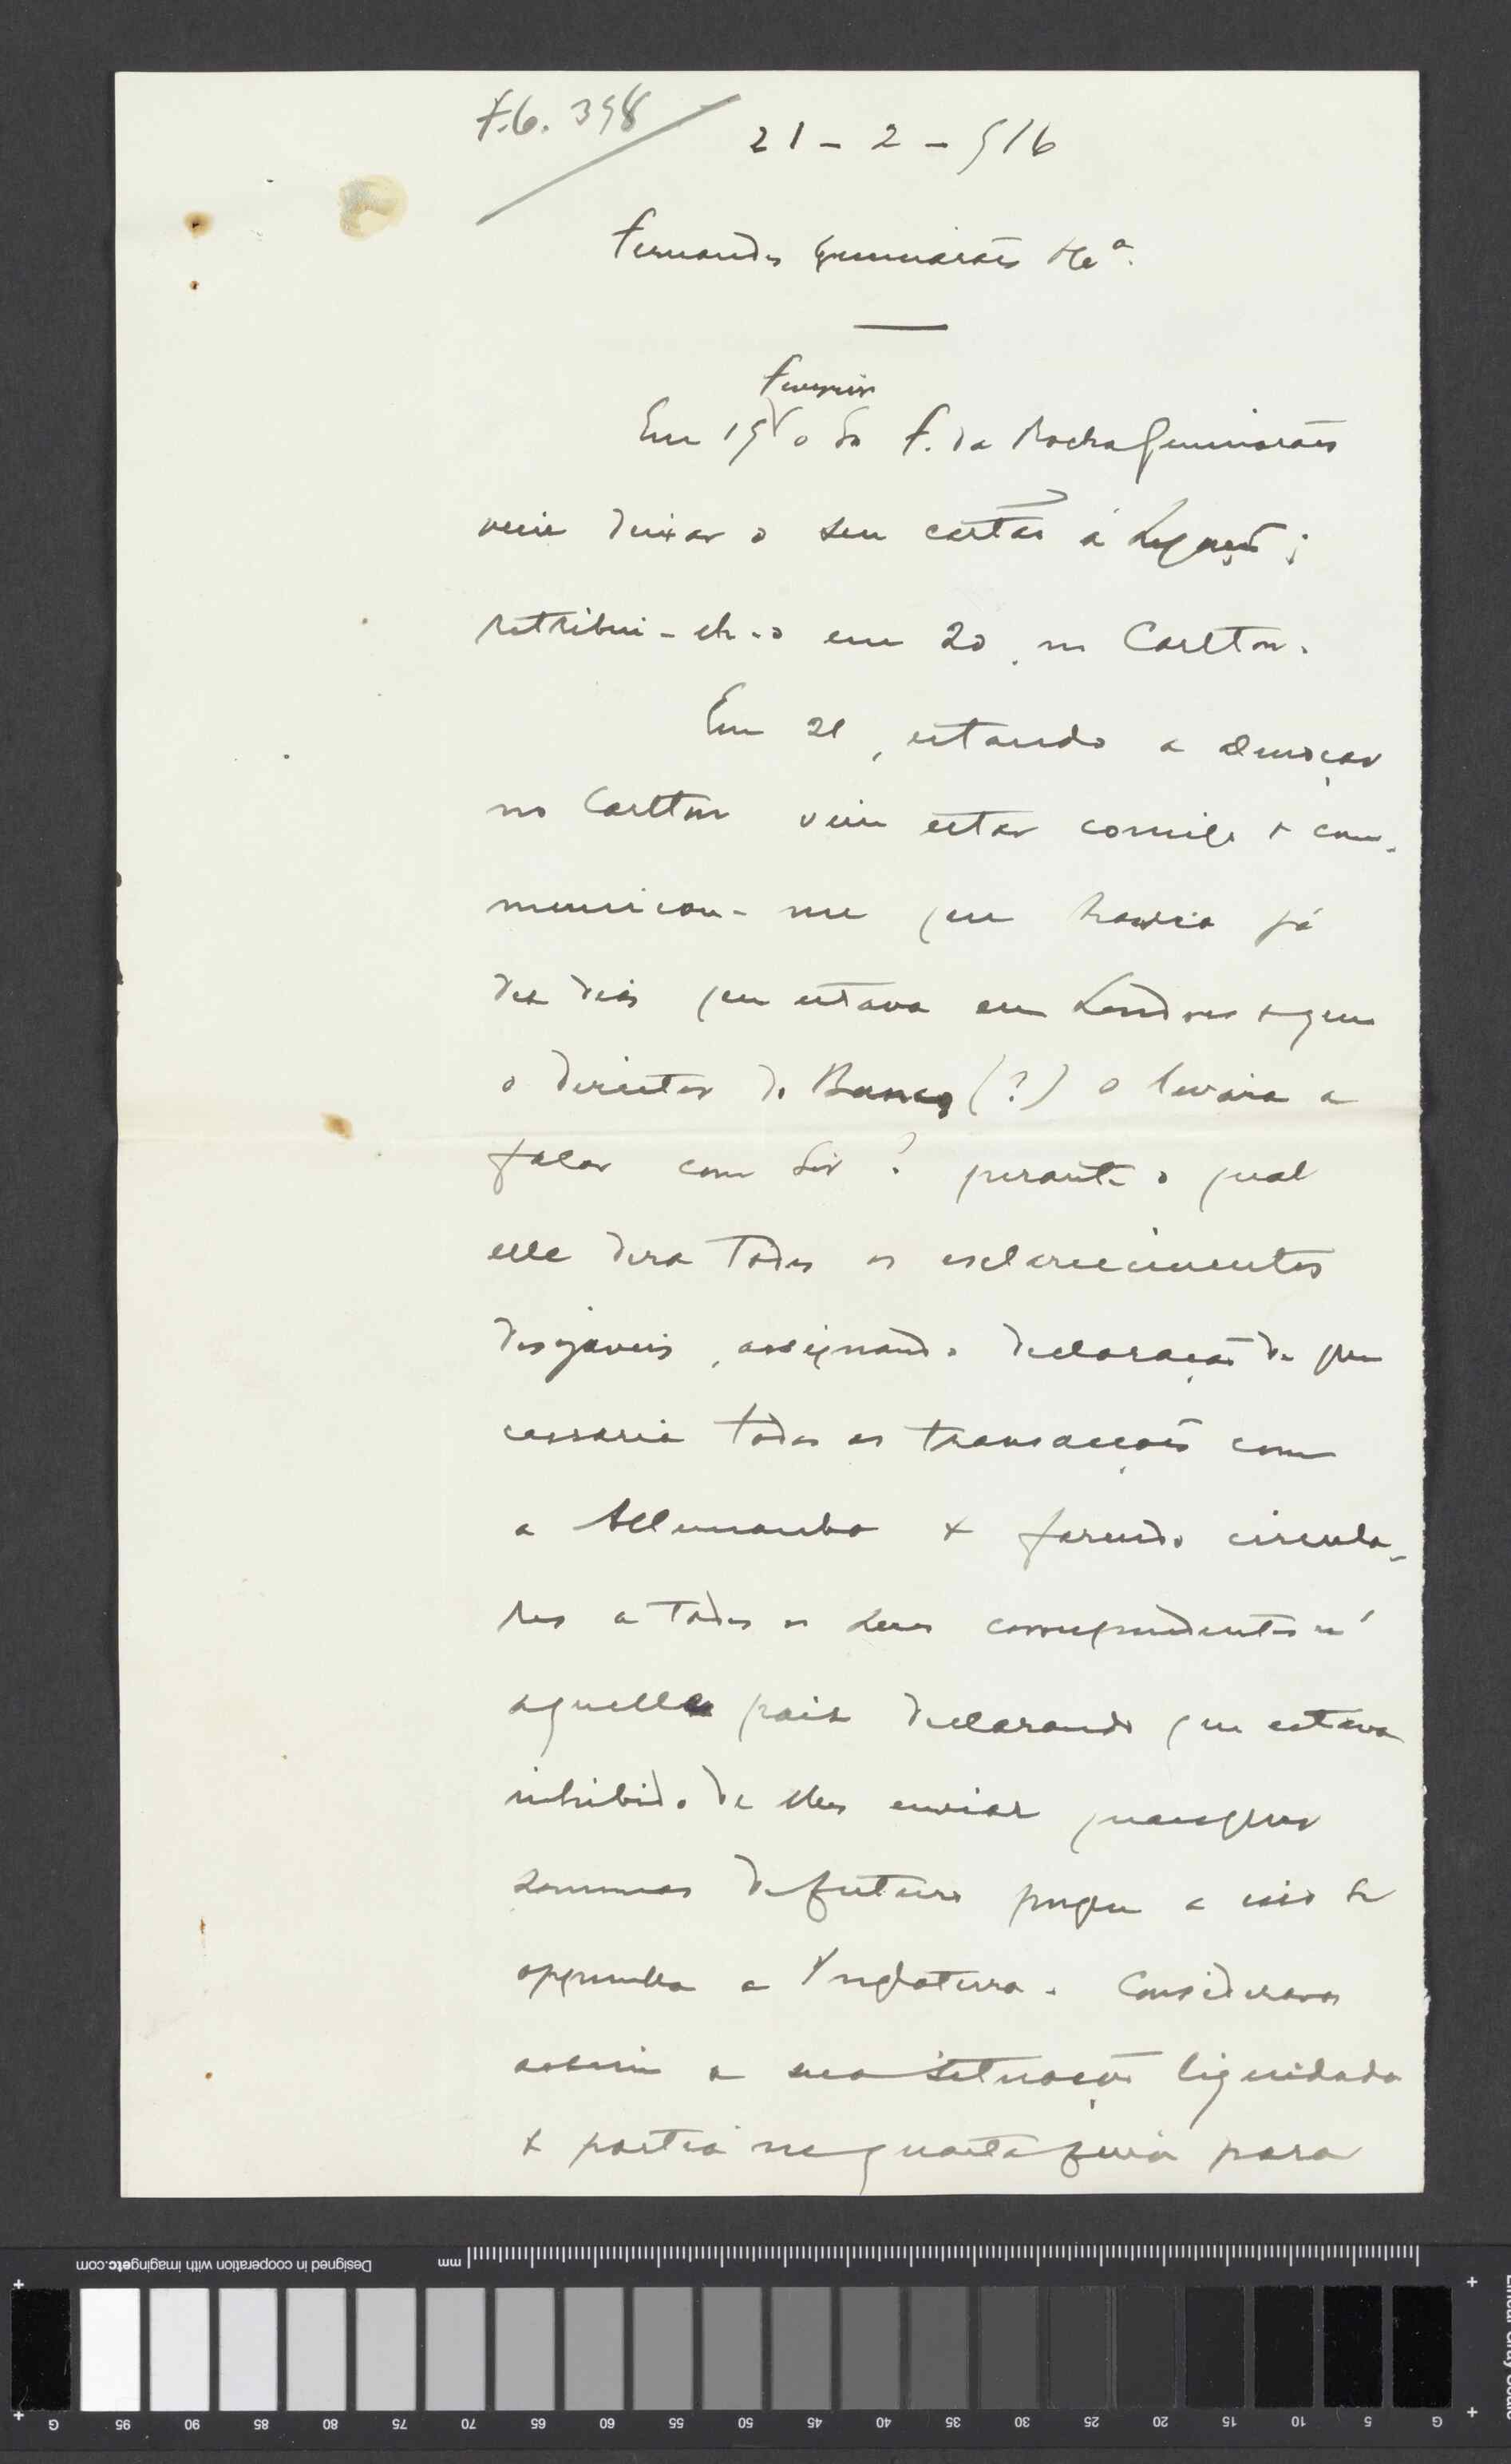 F.G. 398
21 - 2 - 916
Fernandes Guimarães & Cª.
Fevereiro
Em 19 o Sr F. da Rocha Guimarães
veiu deixar o seu cartão á Legação;
retribui-lh'o em 20, no Carlton.
Em 21, estando a almoçar
no Carlton veiu estar comigo e com-
municou-me que havia já
dez dias que estava em Londres e que
o director do Banco (?) o levára a
falar com Sir ? perante o qual
elle dera todos os esclarecimentos
desejaveis, assignando declaração de que
cessaria todas as transacções com
a Allemanha e fazendo circula-
res a todos os seus correspondentes n'
aquelle paiz declarando que estava
inhibido de lhes enviar quaesquer
sommas de futuro porque a isso se
oppunha a Inglaterra. Considerava
assim a sua situação liquidada
e partia na quarta feira para
Designed in cooperation with imagingetc.com
mm
G 95 90 85 80 75 70 65 60 55 50 45 40 35 30 25 20 15 10 5 G